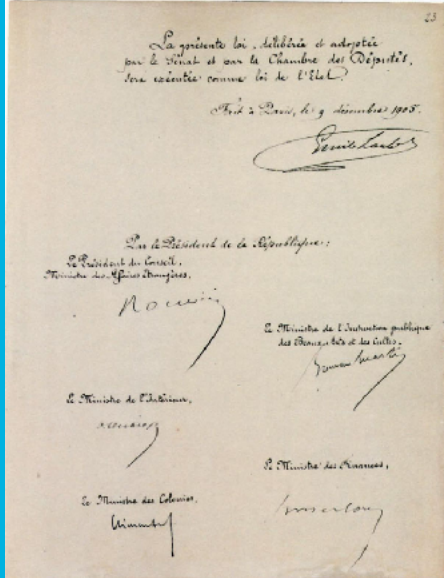 23
La présente loi, délibérée et adoptée
par le Sénat et par la Chambre des Députés,
sera exécutée comme loi de l'Etat.
Fait à Paris, le 9 décembre 1905.
Emile Loubet
Par le Président de la République:
Le Président du Conseil,
Ministre des Affaires Etrangères,
Rouvier
Le Ministre de l'Instruction publique
des Beaux-Arts et des Cultes,
Le Ministre de l'Intérieur,
Le Ministre des Finances,
Le Ministre des Colonies,
Clémentel